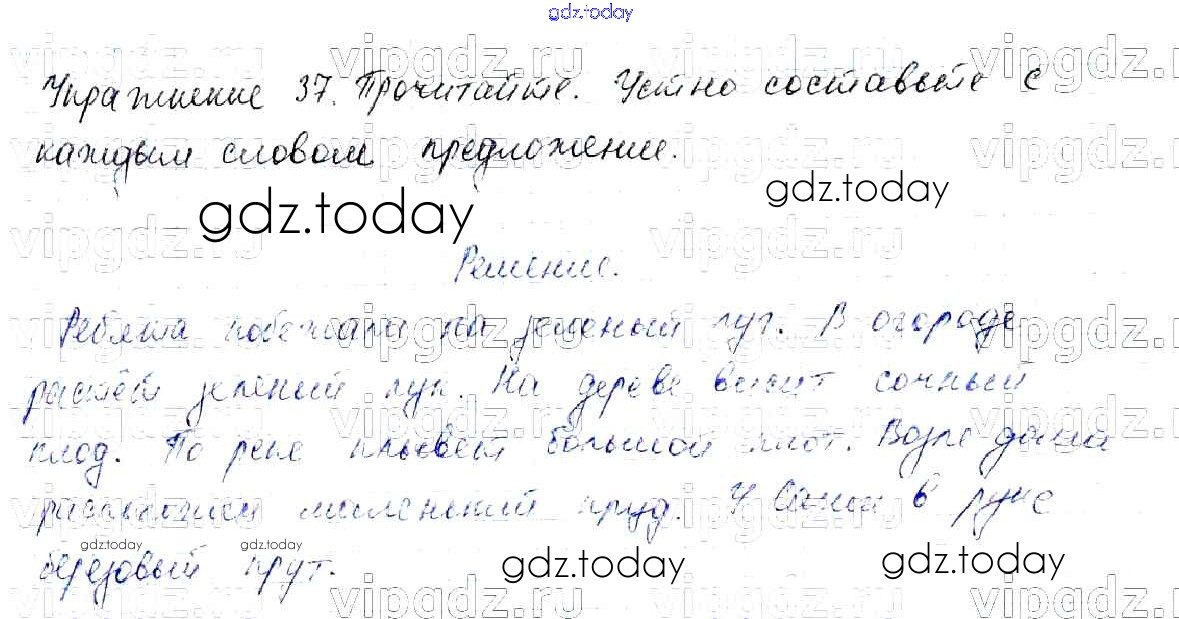 gdz.today
Упражнение 37. Прочитайте. Устно составьте с
каждым словом предложении.
gdz.today
gdz.today
Решение.
Ребята побежали на зеленый луг. В огороде
растёт зеленый лук. На дереве висит сочный
плод. По реке плывёт большой плот. Возле дома
расположен маленький пруд. У Саши в руке
gdz.today gdz.today
березовый прут.
gdz.today gdz.today
vipgdz.ru